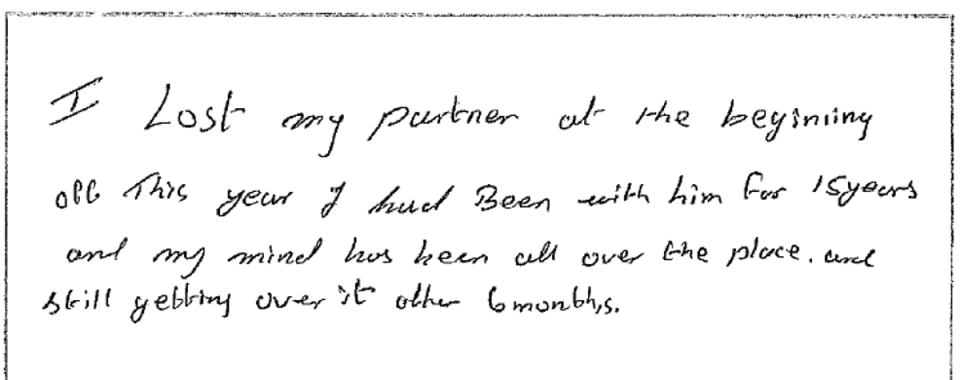 I Lost my partner at the begining
off This year I had Been with him for 15years
and my mind has been all over the place. and
still getting over it after 6 months.